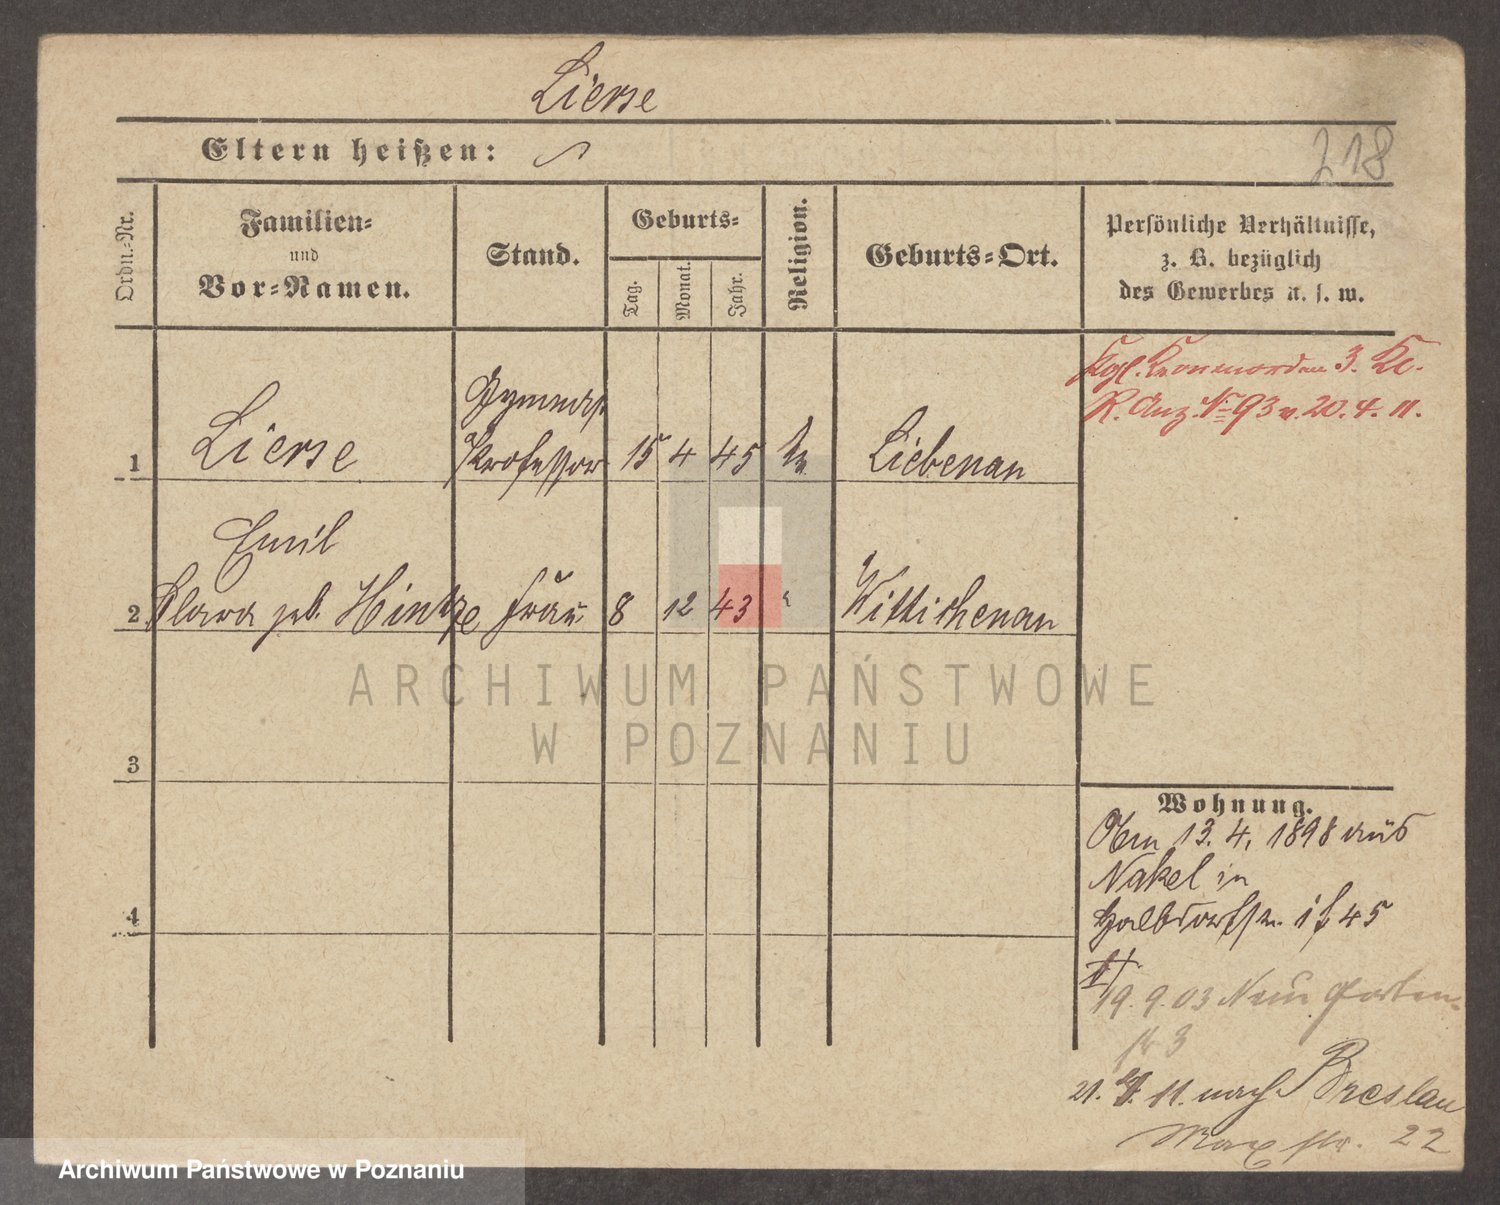 Lierse
Eltern heißen:
218
Ordn.-Nr.
Familien-
und
Vor-Namen.
Stand.
Geburts-
Tag.
Monat.
Jahr.
Religion.
Geburts-Ort.
Persönliche Verhältnisse,
z. B. bezüglich
des Gewerbes u. s. w.
Kgl. Kronenorden 3. Kl.
R. Anz. No 93 v. 20. 4. 11.
1
Lierse
Gymnas.
Professor
15 4 45
Liebenau
Emil
2
Clara geb. Hintze
Frau
8 12 43
"
Wittichenau
3
4
Wohnung.
13. 4. 1898 aus
Nakel in
Halbdorfstr. 45
19. 9. 03 Neue Garten-
str 3
21. 11. nach Breslau
Max str. 22
ARCHIWUM PAŃSTWOWE
W POZNANIU
Archiwum Państwowe w Poznaniu